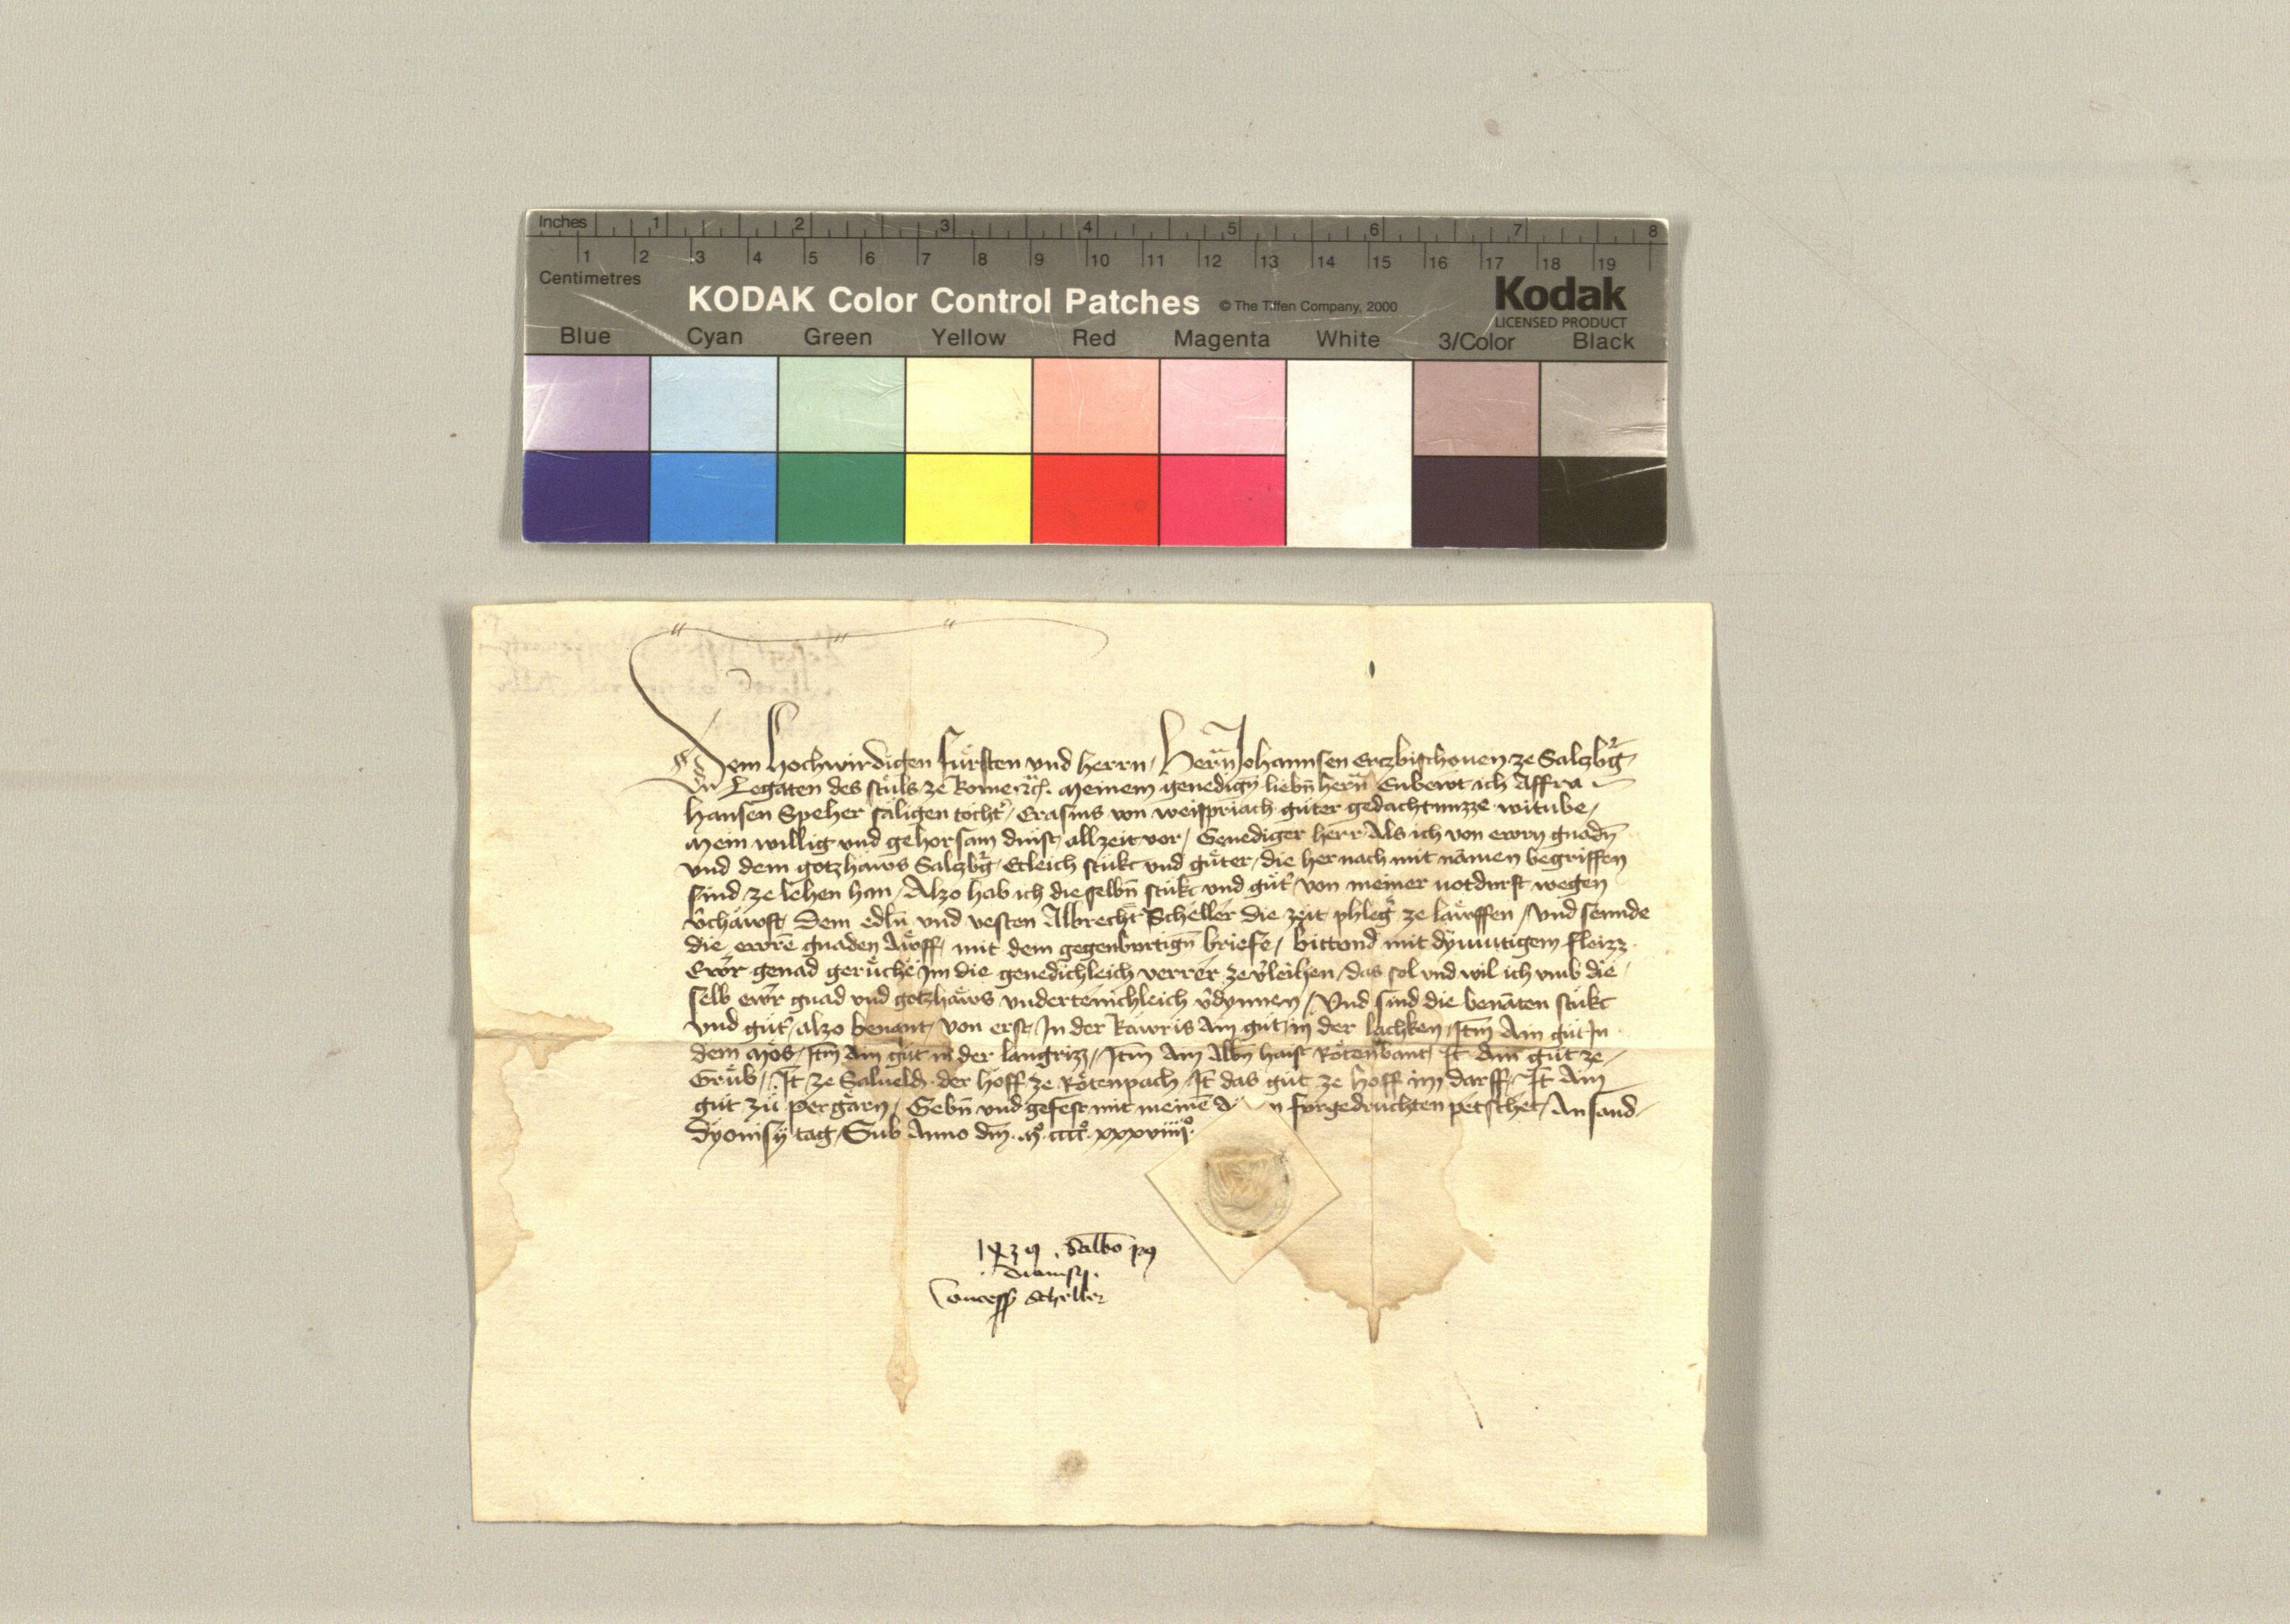 Inches 1 2 3 4 5 6 7 8
1 2 3 4 5 6 7 8 9 10 11 12 13 14 15 16 17 18 19
Centimetres
KODAK Color Control Patches © The Tiffen Company, 2000 Kodak
LICENSED PRODUCT
Blue Cyan Green Yellow Red Magenta White 3/Color Black
Dem hochwirdigen fürsten vnd herrn, Hern Johannsen Erczbischouen ze Salzbg
vn Legaten des stuls ze Rome etc. meinem genedign liebn hern Enbewt ich Affra
hansen Speher saligen tocht, Erasms von weispriach guter gedachtnuzze witube,
mein willig vnd gehorsam dinst allzeit vor, Genediger herr Als ich von ewrn gnadn
vnd dem gotzhaws Salzbg, Etleich stukc vnd güter, die hernach mit namen begriffen
sind, ze lehen han, Alzo hab ich dieselbn stukc vnd güt von meiner notdurft wegen
vchawft Dem edln vnd vesten Albrecht Scheller die zeit phleg ze lawffen, vnd sennde
die ewrn gnaden Awff, mit dem gegenburtign briefe, bittend mit dymutigem fleizz
Ewr genad geruche im die genedichleich verrer ze vleihen, das sol vnd wil ich vmb die
selb ewr gnad vnd gotzhaws vndertenichleich vdynnen, Vnd sind die benaten stukc
vnd güt, alzo benant, von erst, In der Rawris Ain gut, in der lachken, Itm Ain gut In
dem Mos, Itm Ain gut in der langrizz, Itm Ain Albn haist Rotenbant, It Ain gut ze
Grub, It ze Salueld, der hoff ze Rotenpach, It das gut ze hoff im darff, It Ain
gut zu pergarn, Gebn vnd gefest mit meine n furgedruchten petschet, An sand
Dyonisy tag, Sub Anno dm. mo. cccco. xxxviiiio.
1439. Salbo
dionisij.
Concess Scheller